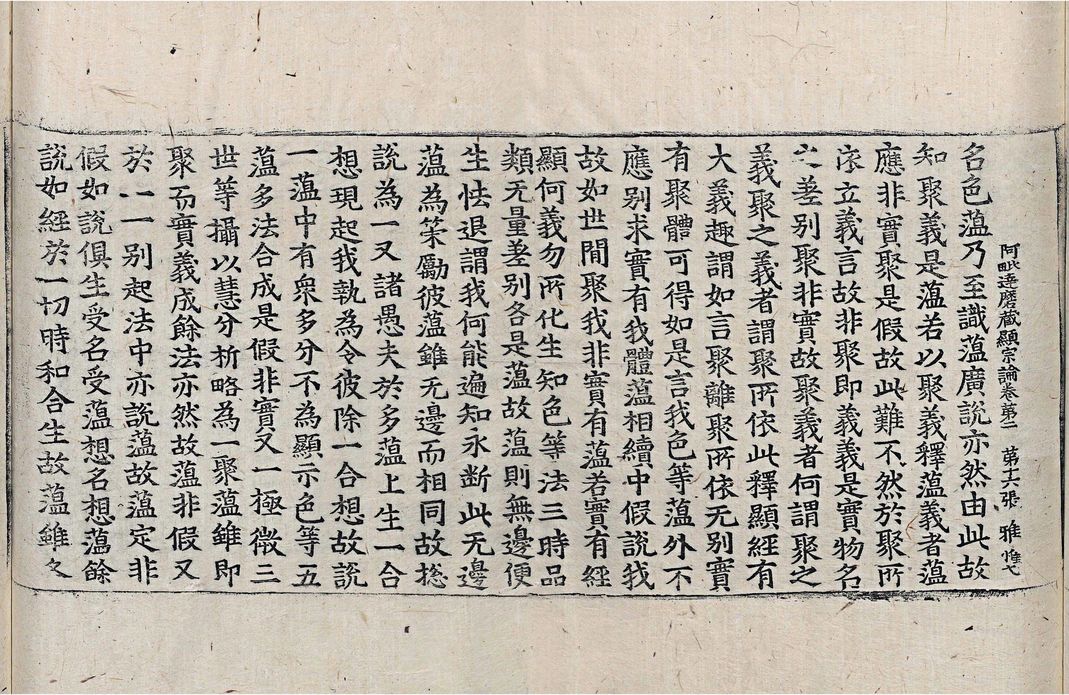 阿毗達磨藏顯宗論卷第二　第十六張　雅
名色蕰乃至識蕰廣說亦然由此故
知聚義是蕰若以聚義釋蕰義者蕰
應非實聚是假故此難不然於聚所
依立義言故非聚即義義是實物名
之差別聚非實故聚義者何謂聚之
義聚之義者謂聚所依此釋顯經有
大義趣謂如言聚離聚所依无別實
有聚體可得如是言我色等蕰外不
應別求實有我體蕰相續中假說我
故如世間聚我非實有蕰若實有經
顯何義勿所化生知色等法三時品
類无量差別各是蕰故蕰則無邊便
生怯退謂我何能遍知永斷此无邊
蕰為策勵彼蕰雖无邊而相同故捴
說為一又諸愚夫於多蕰上生一合
想現起我執為令彼除一合想故說
一蕰中有衆多分不為顯示色等五
蕰多法合成是假非實又一極微三
世等攝以慧分析略為一聚蕰雖即
聚而實義成餘法亦然故蕰非假又
於一一別起法中亦說蕰故蕰定非
假如說俱生受名受蕰想名想蕰餘
說如經於一切時和合生故蕰雖各